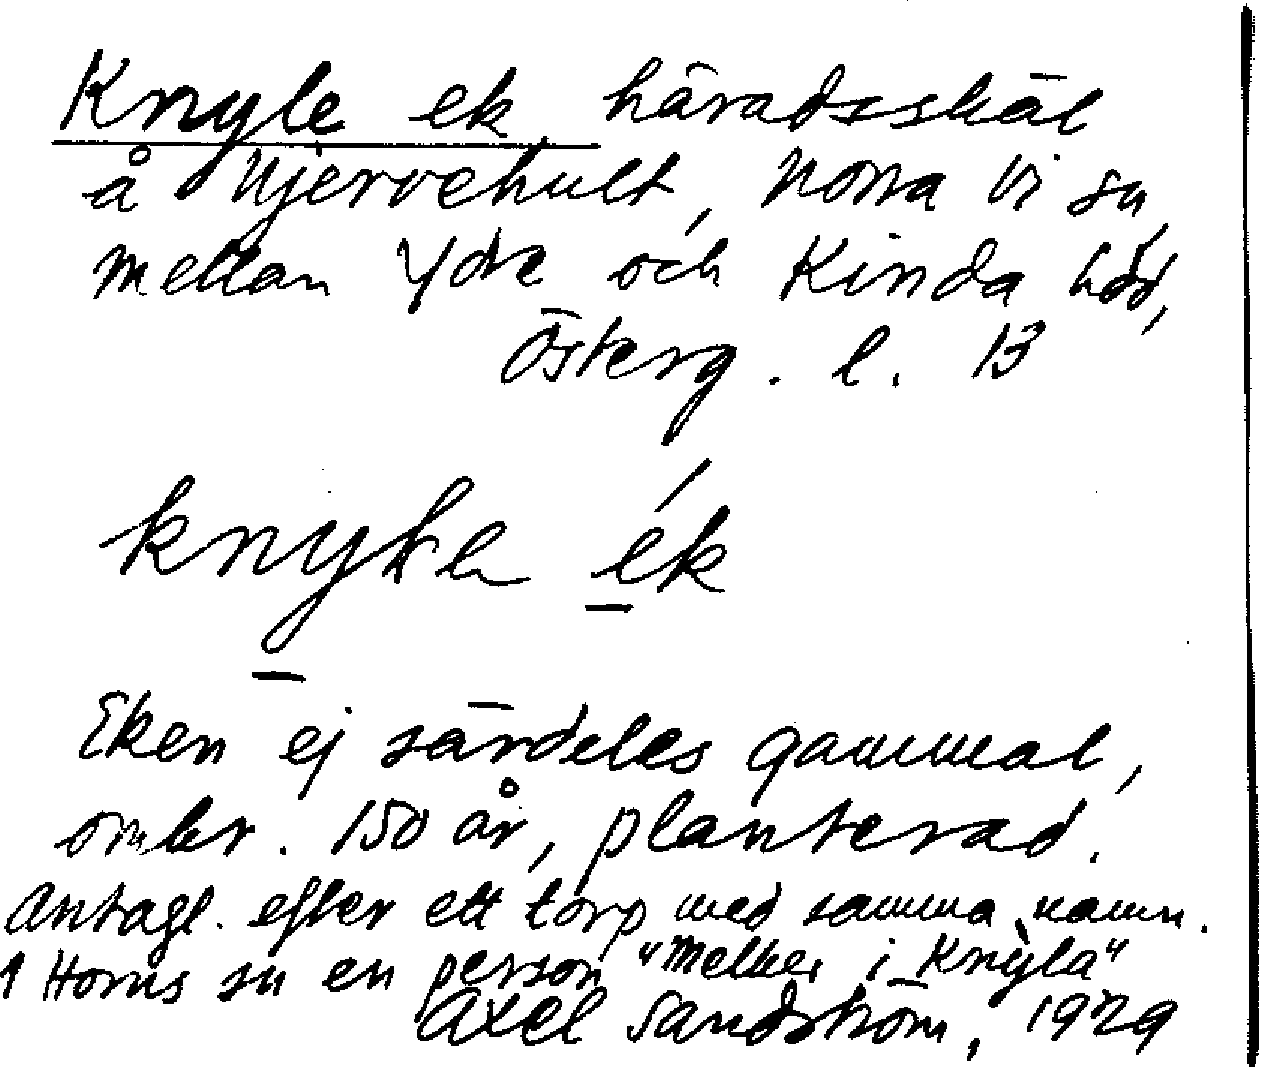 Knyle ek, häradsskäl
å Njervehult, Norra Vi sn,
mellan Ydre och Kinda hdr,
Österg. l. 13
knyka ék
Eken ej särdeles gammal,
ombr. 150 år, planterad.
Antagl. efter ett torp med samma namn.
I Horns sn en person "Melker i Knyla"
Axel Sandström, 1929